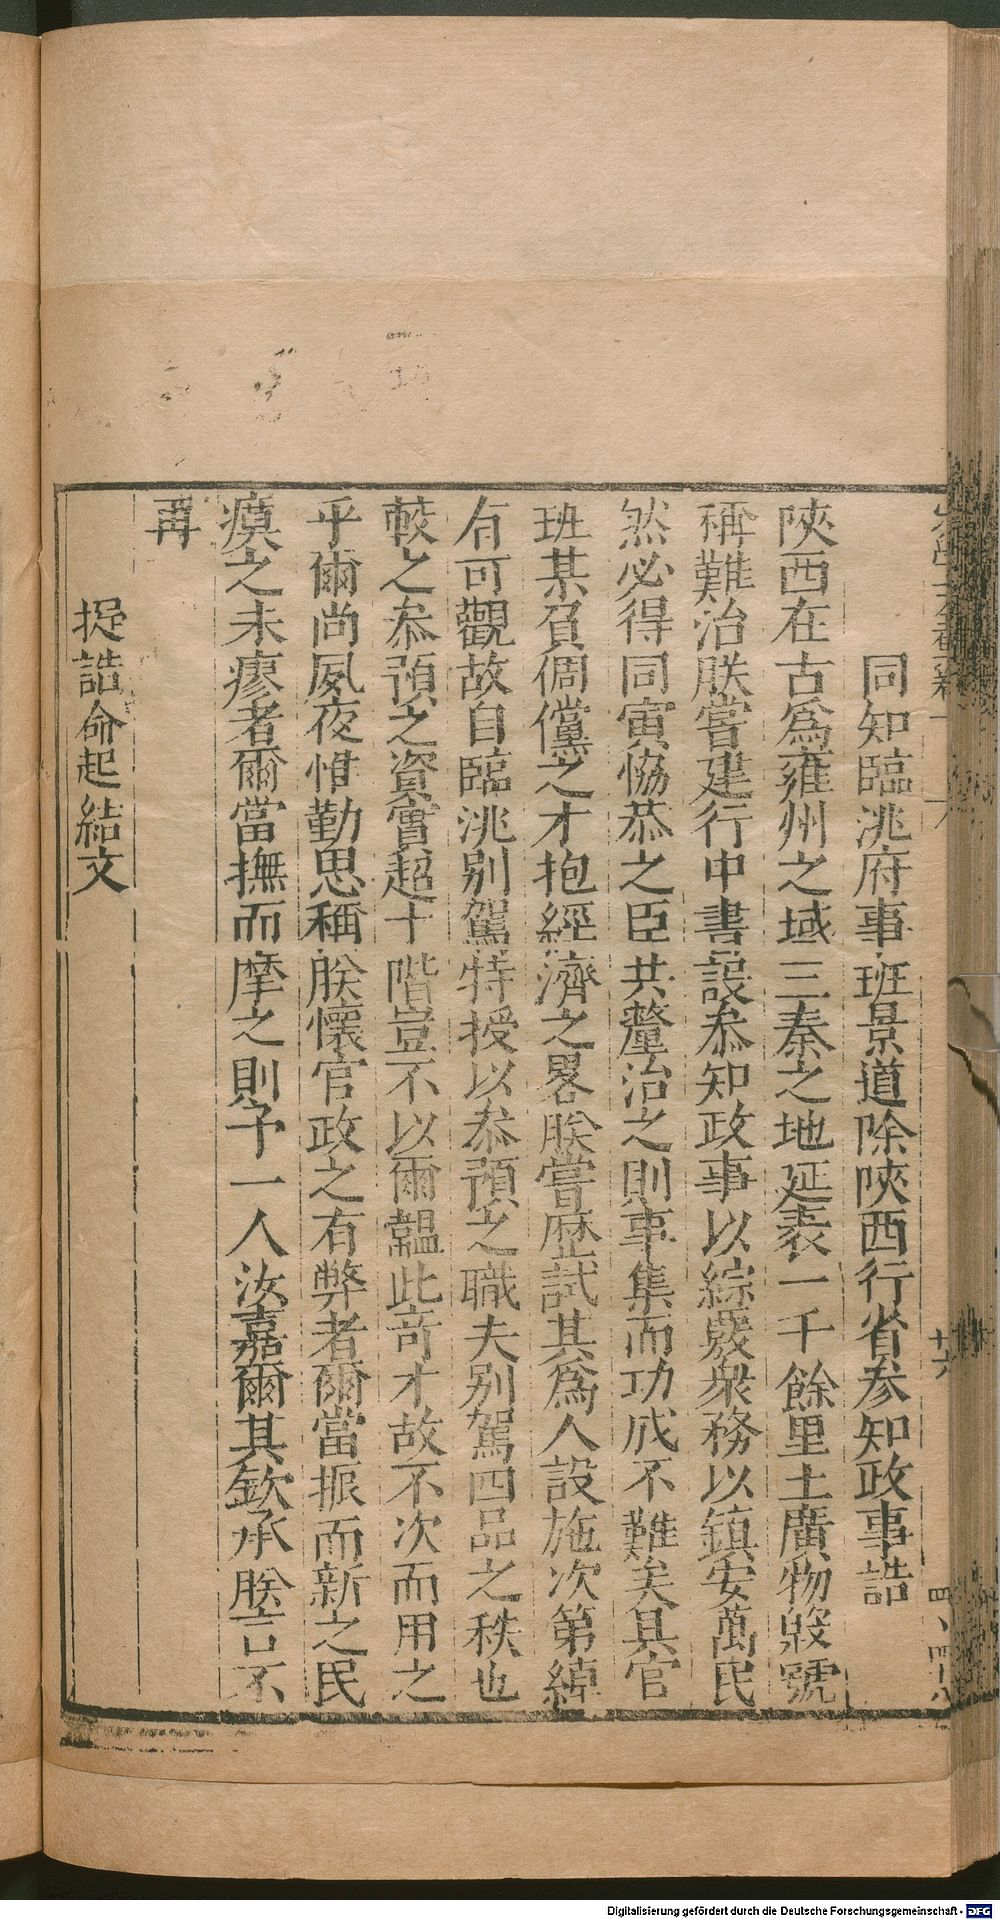 同知臨洮府事班景道除陝西行省参知政事誥
陝西在古爲雍州之域三秦之地延袤一千餘里土廣物殷號
稱難治朕嘗建行中書設叅知政事以綜覈衆務以鎮安萬民
然必得同寅恊恭之臣共釐治之則事集而功成不難矣具官
班某負倜儻之才抱經濟之畧朕嘗歴試其爲人設施次第綽
有可觀故自臨洮别駕特授以叅預之職夫别駕四品之秩也
較之叅預之資實超十階豈不以爾韞此竒才故不次而用之
乎爾尚夙夜惟勤思稱朕懷官政之有弊者爾當振而新之民
瘼之未瘳者爾當撫而摩之則予一人汝嘉爾其欽承朕言不
再
擬誥命起結文
十六
Digitalisierung gefördert durch die Deutsche Forschungsgemeinschaft - DFG